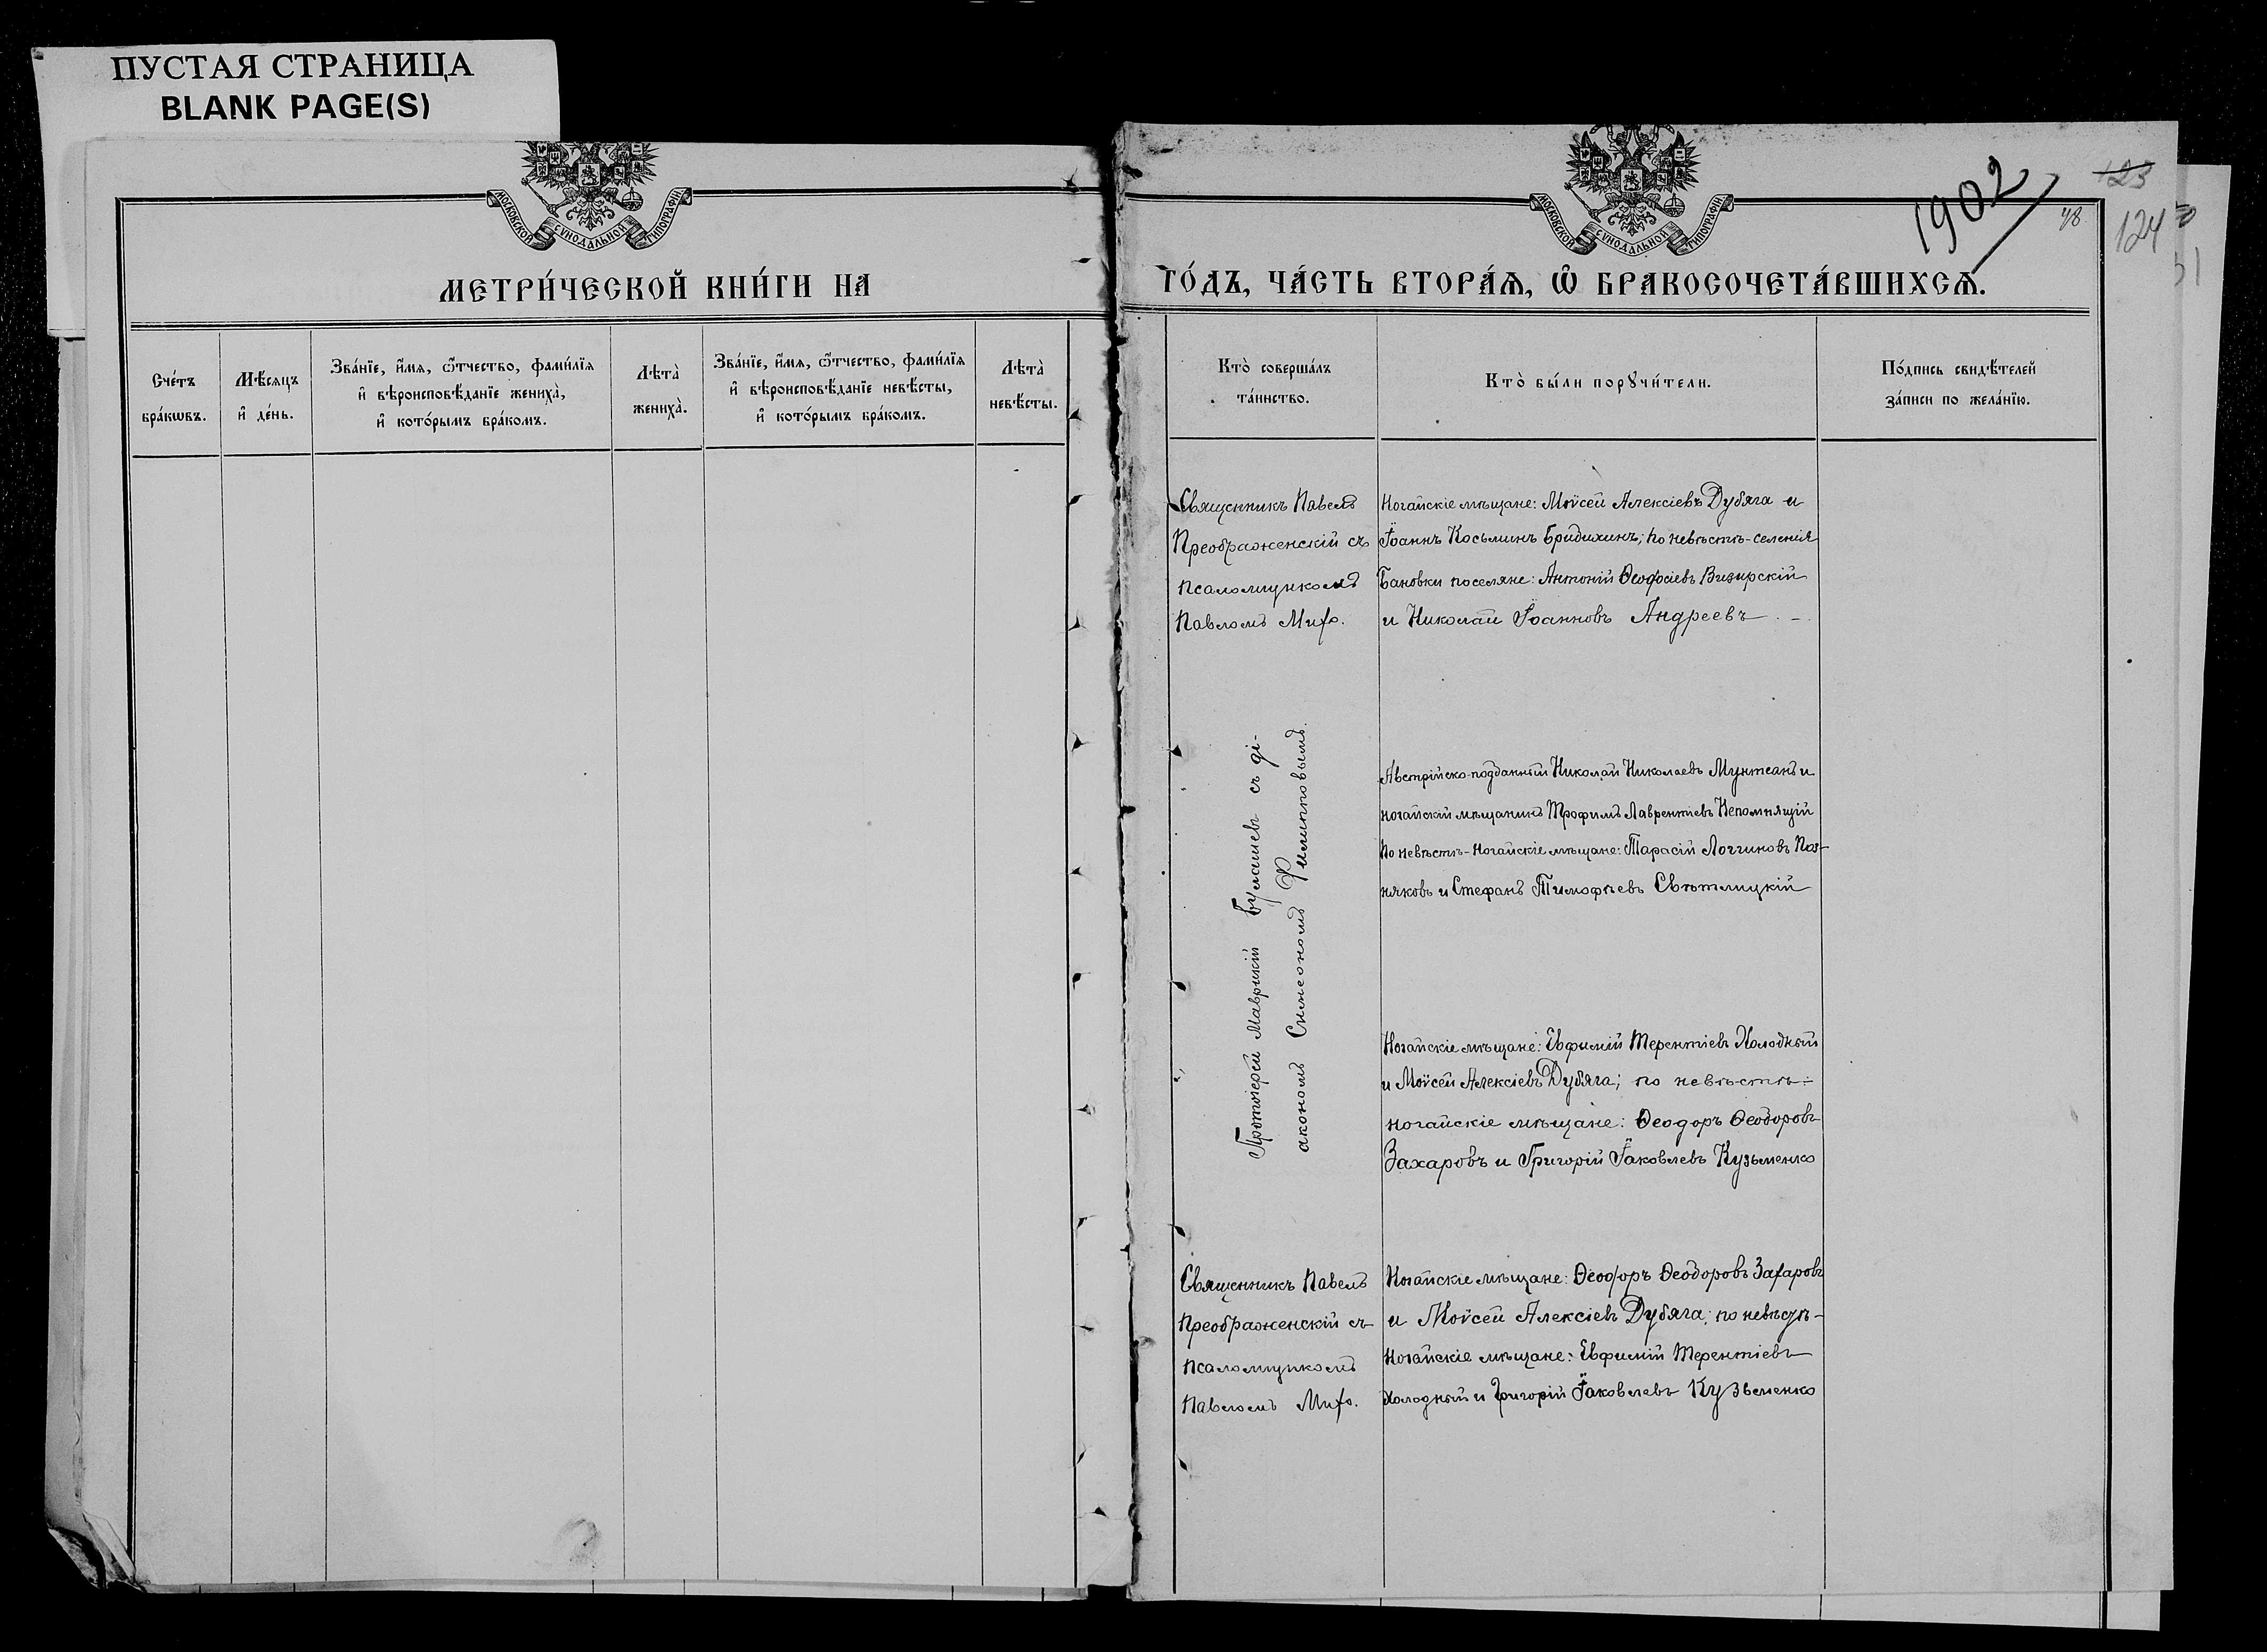 ПУСТАЯ СТРАНИЦА
BLANK PAGE(S)
МОСКОВСКОЙ СѴНОДАЛЬНОЙ ТИПОГРАФІИ
МЕТРИ́ЧЕСКОЙ КНИ́ГИ НА
Сче́тъ
бра́кѡвъ.
Мѣ́сяцъ
и҆ де́нь.
Зва́нїе, и҆́мѧ, ѻ҆́тчество, фами́лїѧ
и҆ вѣроисповѣ́данїе жениха̀,
и҆ кото́рымъ бра́комъ.
Лѣта̀
жениха̀.
Зва́нїе, и҆́мѧ, ѻ҆́тчество, фами́лїѧ
и҆ вѣроисповѣ́данїе невѣ́сты,
и҆ кото́рымъ бра́комъ.
Лѣта̀
невѣ́сты.
МОСКОВСКОЙ СѴНОДАЛЬНОЙ ТИПОГРАФІИ
1902
123
48
124
ГО́ДЪ, ЧА́СТЬ ВТОРА́Ѧ, Ѡ҆ БРАКОСОЧЕТА́ВШИХСѦ.
Кто̀ соверша́лъ
та́инство.
Кто̀ бы́ли порꙋчи́тели.
По́дпись свидѣ́телей
за́писи по жела́нїю.
Священникъ Павелъ
Преображенскій съ
псаломщикомъ
Павломъ Михо.
Ногайскіе мѣщане: Моѵсей Алексіевъ Дубяга и
Іоаннъ Косьминъ Бридихинъ; по невѣстѣ - селенія
Бановки поселяне: Антоній Ѳеодосіевъ Визирскій
и Николай Іоанновъ Андреевъ. –
Протоіерей Маврикій Булашевъ съ ді-
акономъ Симеономъ Филипповымъ.
Австрійско-подданный Николай Николаевъ Мунтеанъ и
ногайскій мѣщанинъ Трофимъ Лаврентіевъ Непомнящій
По невѣстѣ - Ногайскіе мѣщане: Тарасій Логгиновъ Поз-
няковъ и Стефанъ Тимофѣевъ Свѣтлицкій
Ногайскіе мѣщане: Евфимій Терентіевъ Холодный
и Моѵсей Алексіевъ Дубяга; по невѣстѣ:-
ногайскіе мѣщане: Ѳеодоръ Ѳеодоровъ
Захаровъ и Григорій Іаковлевъ Кузьменко
Священникъ Павелъ
Преображенскій съ
псаломщикомъ
Павломъ Михо.
Ногайскіе мѣщане: Ѳеодоръ Ѳеодоровъ Захаровъ
и Моѵсей Алексіевъ Дубяга; по невѣстѣ -
Ногайскіе мѣщане: Евфимій Терентіевъ
Холодный и Григорій Іаковлевъ Кузьменко